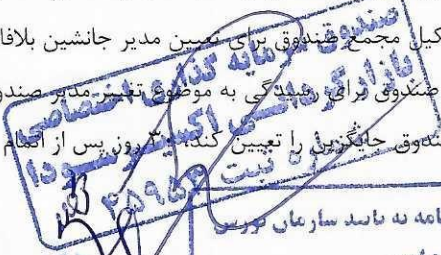 کیل مجمع صندوق برای تعیین مدیر جانشین بلافا
صندوق برای رسیدگی به موضوع تغییر مدیر صندو
ندوق جایگزین را تعیین کند، ۳۰ روز پس از اتمام
صندوق سرمایه گذاری اختصاصی
بازارگردانی اکسیر سودا
ثبت
نامه به تایید سازمان بورس